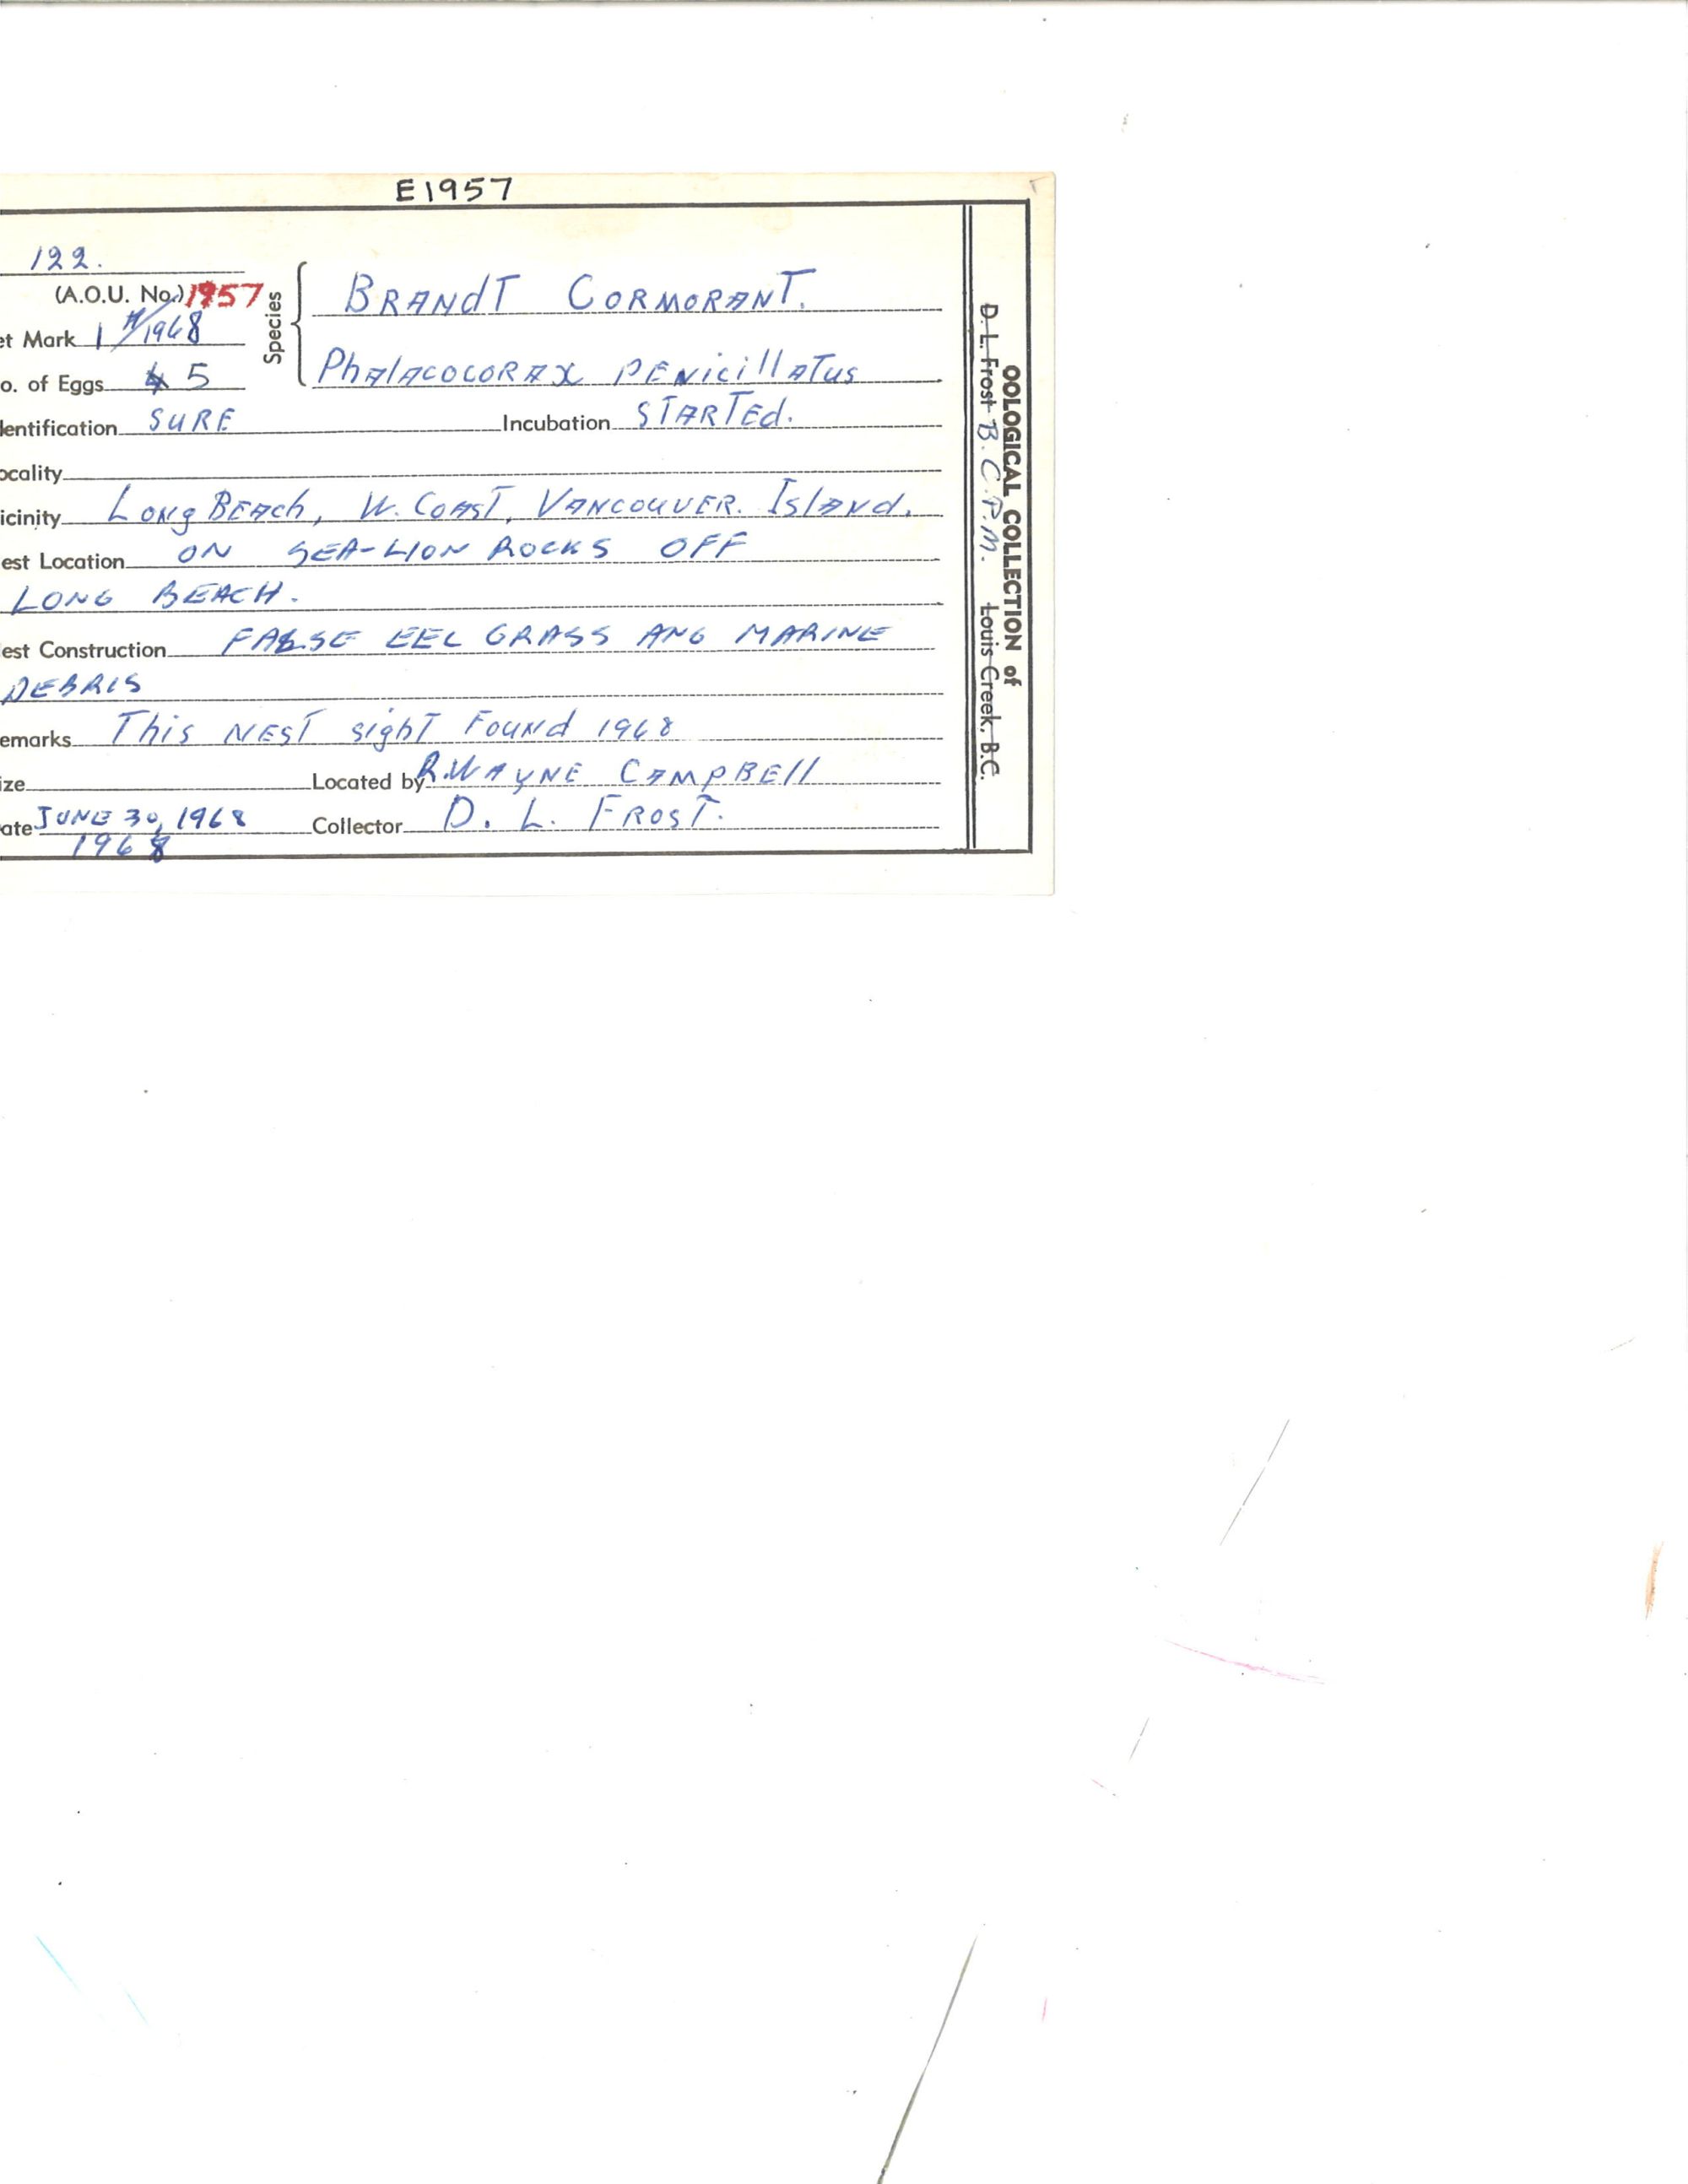 E1957
122.
(A.O.U. No.) 1957
et Mark 1 1968
o. of Eggs 4 5
Species
BRANdT CORMORANT.
PhAlACOCORAX PENicillATUS
dentification SURE Incubation STARTEd.
ocality
icinity Long BEAch, W. COAST, VANCOUVER. IslANd.
est Location ON SEA-LION ROCKS OFF
LONG BEACH.
est Construction FALSE EEL GRASS ANG MARINE
DEBRIS
emarks This NEST sighT FOUNd 1968
ize Located by R.WAYNE CAMPBEll
ate JUNE 30, 1968 Collector D. L. FROST.
1968
OOLOGICAL COLLECTION of
D. L. Frost B.C.P.M. Louis Creek, B.C.